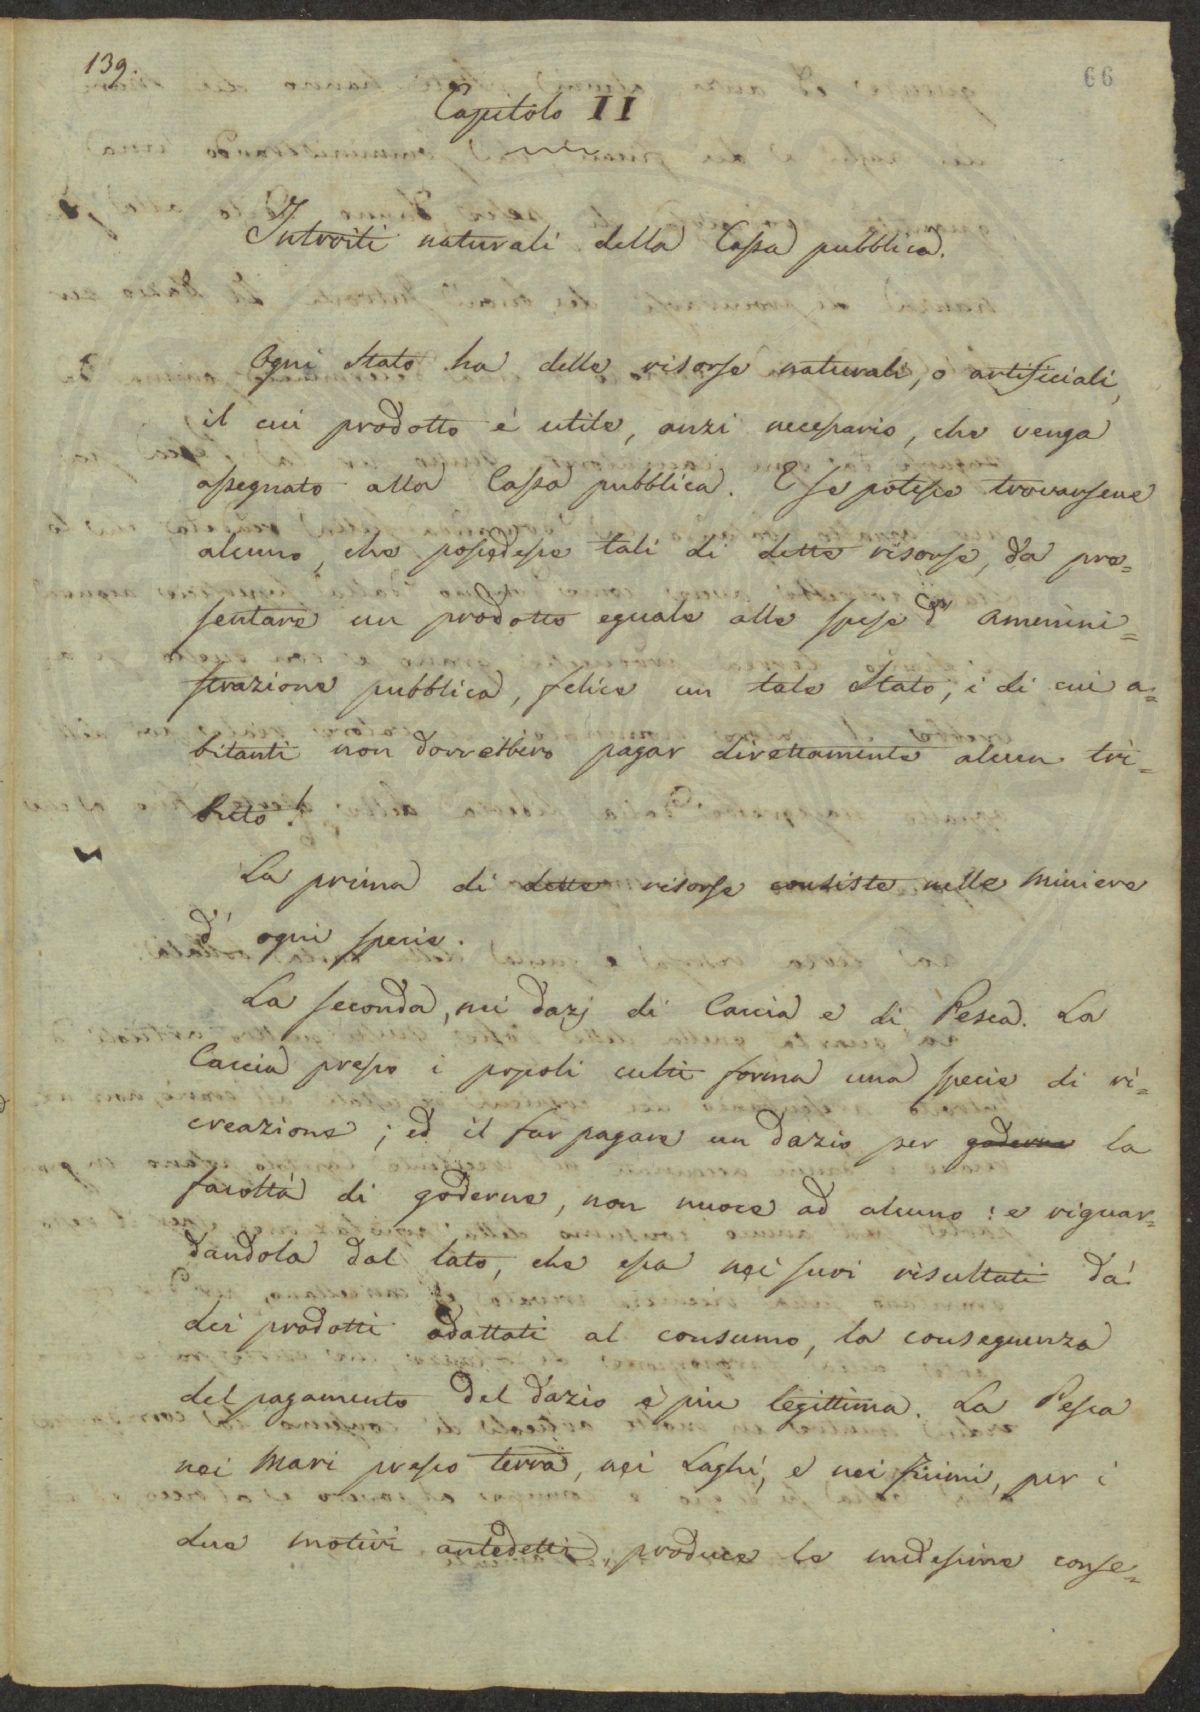 139.
66
Capitolo II
Introiti naturali della Cassa pubblica.
Ogni Stato ha delle risorse naturali, ò artificiali,
il cui prodotto é utile, anzi necessario, che venga
assegnato alla Cassa pubblica. E se potesse trovarsene
alcuno, che possedesse tali di dette risorse, da pre=
sentare un prodotto eguale alle spese d' Ammini=
strazione pubblica, felice un tale Stato, i di cui a=
bitanti non dovrebbero pagar direttamente alcun tri=
buto!
La prima di dette risorse consiste nelle miniere
d' ogni specie.
La seconda, nei dazj di Caccia e di Pesca. La
Caccia presso i popoli culti forma una specie di ri=
creazione; ed il far pagare un dazio per goderne la
facoltà di goderne, non nuoce ad alcuno: e riguar=
dandola dal lato, che essa nei suoi risultati dà
dei prodotti adattati al consumo, la conseguenza
del pagamento del dazio è piu legittima. La Pesca
nei Mari presso terra, nei Laghi, e nei fiumi, per i
due motivi antedetti, produce le medesime conse=